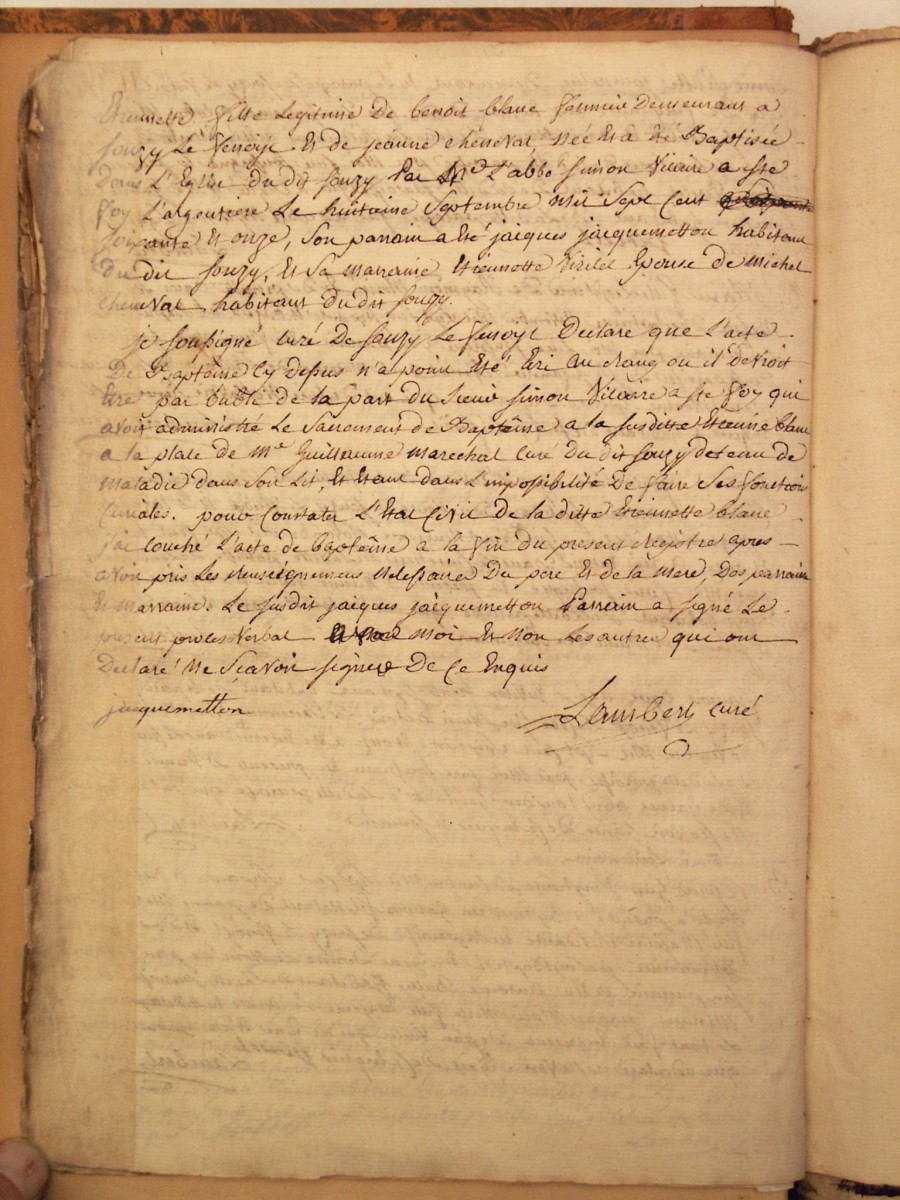 Etiennette fille Legitime De benoit blanc fermier Demeurant a
souzy Le Venoise Et de jeanne chenevat, née Et a été Baptisée
Dans L'Eglise du dit souzy Par Mr L'abbé simon Vicaire a ste
foy L'argentiere Le huitieme Septembre Mil Sept Cent
soixante Et onze, son parrain a Eté jacques jacquemetton habitant
du dit souzy, Et sa Marraine Etiennette Epouse de Michel
chenevat habitant du dit souzy.
je soussigné curé De souzy Le Declare que L'acte
De Baptême cy dessus n'a point Eté Au rang ou il devroit
Etre par oublie de la part du sieur simon Vicaire a ste foy qui
avoit administré Le Sacrement de Baptême a la susditte Etienne blanc
a la place de Me Guillaume Marechal curé Du dit souzy detenu de
Maladie dans son Lit, Et Etant dans L'impossibilité De faire ses fonctions
Curiales. pour Constater L'Etat Civil de la ditte Etiennette blanc
j'ai couché L'acte de baptême a la fin du present Registre apres
avoir pris Les Renseignemens Necessaire Du pere Et de la Mere, Des parrain
Et Marraine. Le susdit jacques jacquemetton Parrain a signé Le
present proces Verbal Moi Et Non Les autres qui ont
Declaré Ne sçavoir signer De Ce Enquis
jacquemetton Lambert curé